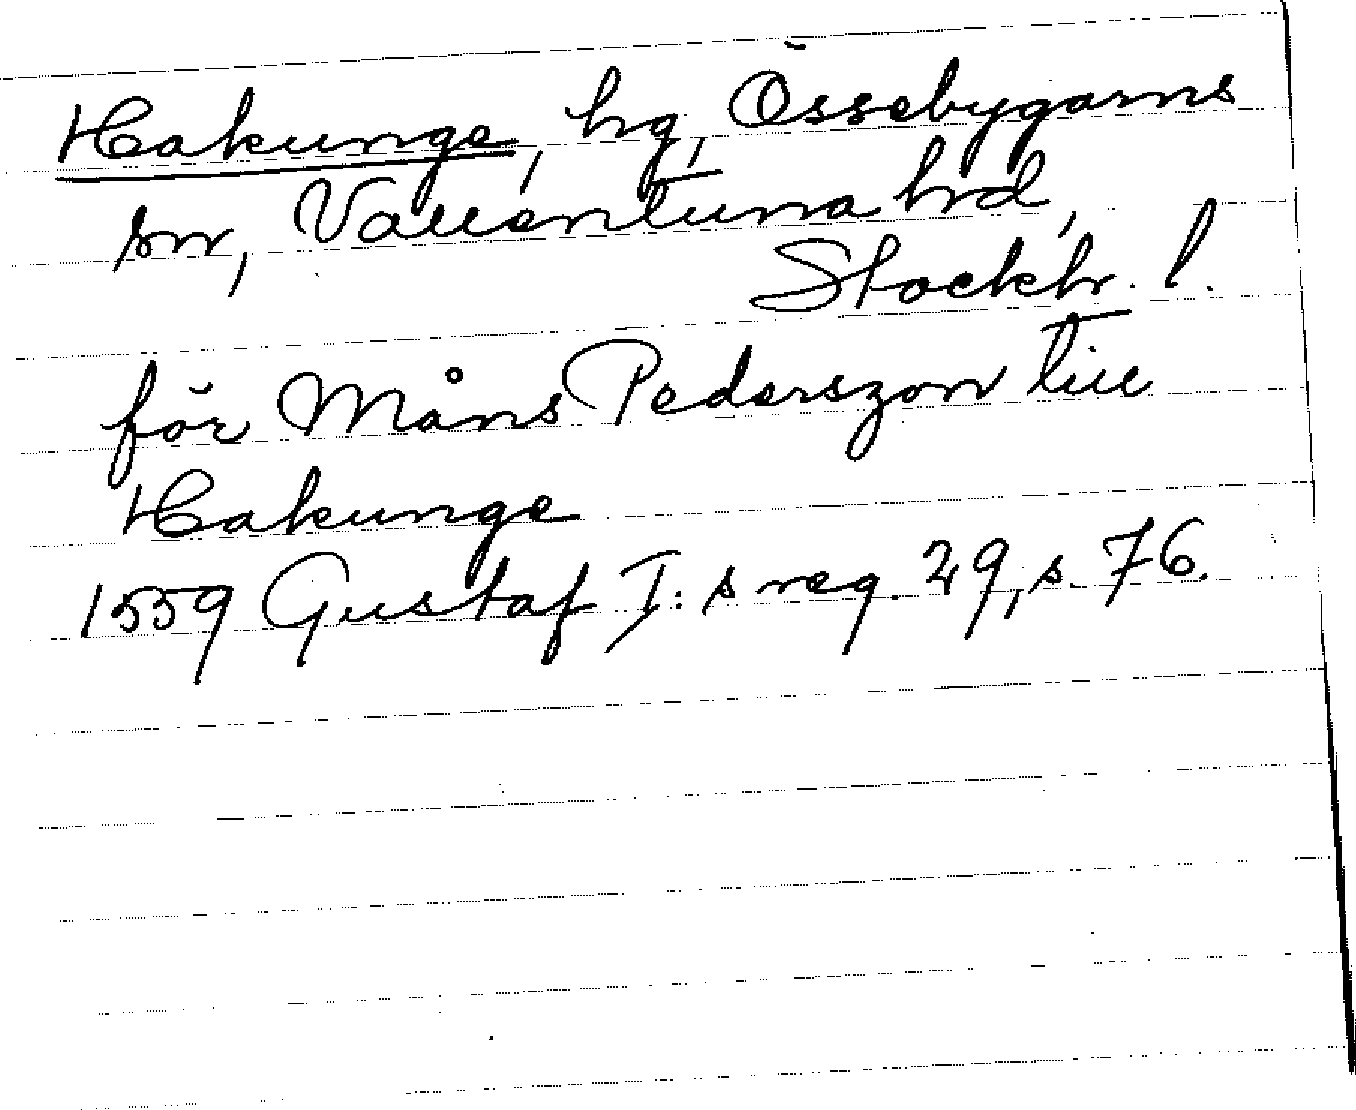 Hakunge, hg, Össebygarns
sn, Vallentuna hrd,
Stockh. l.
för Måns Pederszon till
Hakunge
1559 Gustaf I:s reg. 29, s. 76.